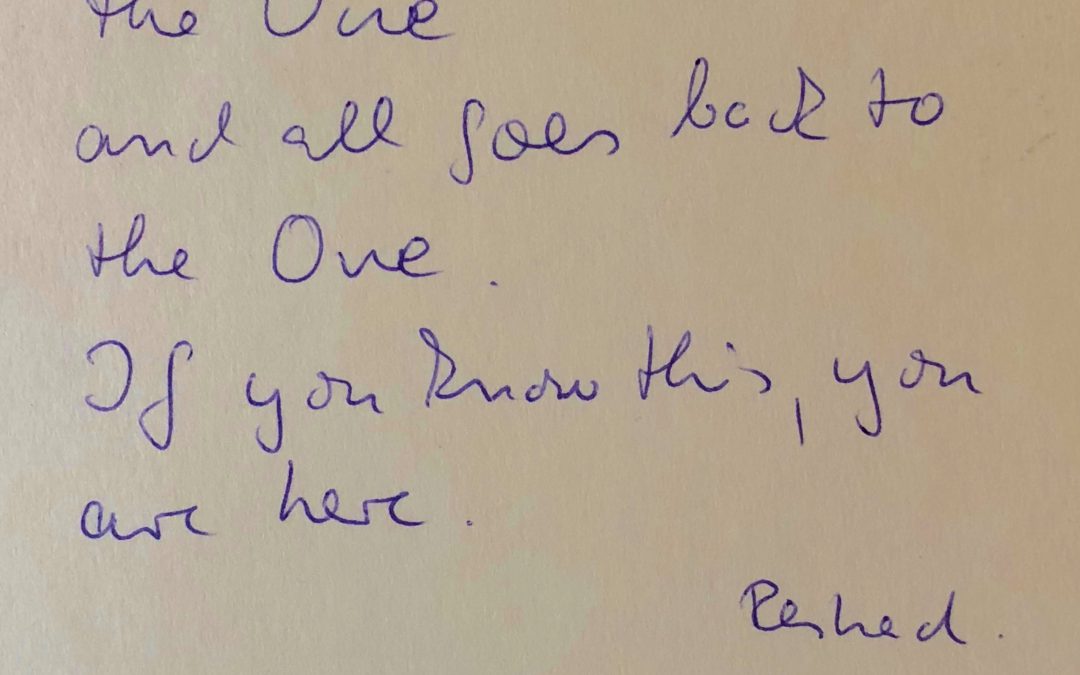 the One
and all goes back to
the One.
If you know this, you
are here.
Reshad.